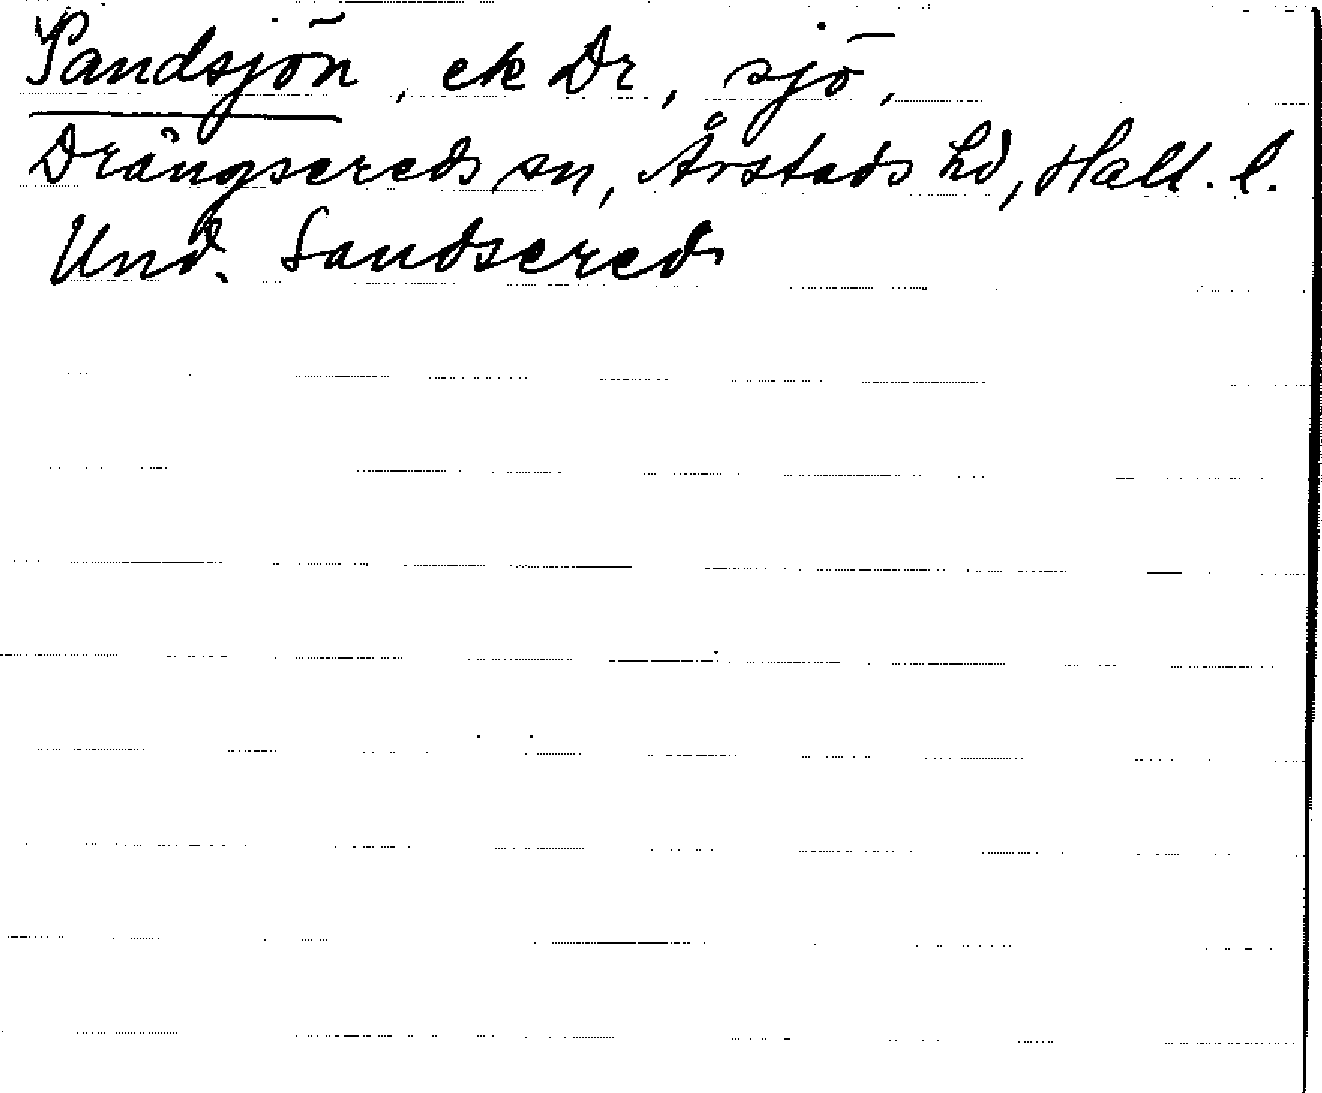 Sandsjön, ek Dr, sjö,
Drängsereds sn, Årstads hd, Hall. l.
Und. Sandsered